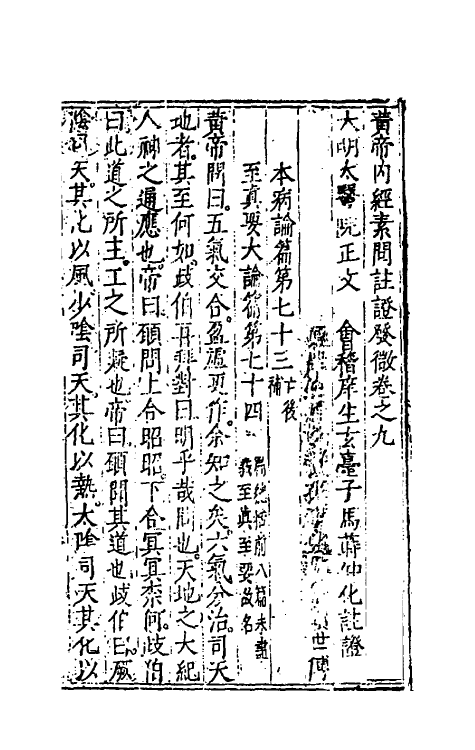 黃帝內經素問註證發微卷之九
大明太醫院正文 會稽庠生玄臺子馬蒔仲化註證
本病論篇第七十三亡後補
至真要大論篇第七十四
黃帝問曰五氣交合盈虛更作余知之矣六氣分治司天
地者其至何如歧伯再拜對曰明乎哉問也天地之大紀
人神之通應也帝曰願聞上合昭昭下合冥冥柰何歧伯
曰此道之所主工之所疑也帝曰願聞其道也歧伯曰厥
陰司天其化以風少陰司天其化以熱太陰司天其化以